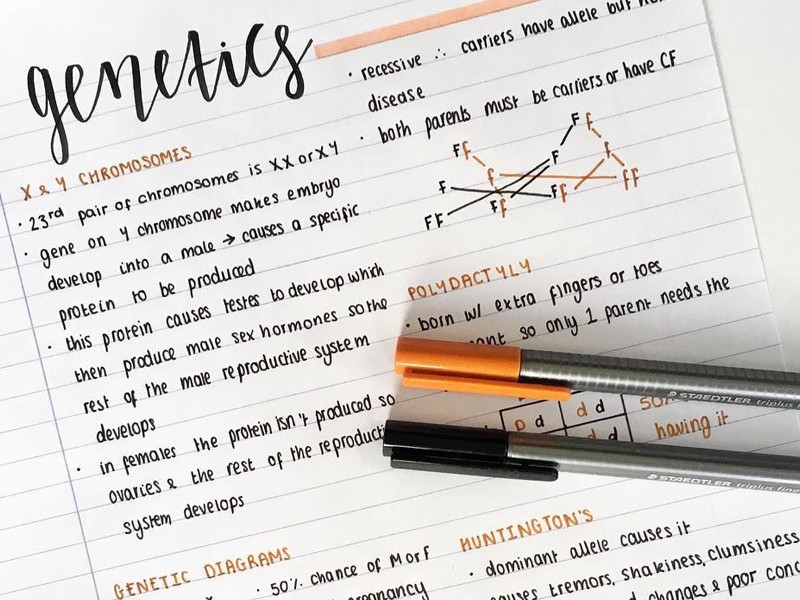 genetics
X & Y CHROMOSOMES
· 23rd pair of chromosomes is XX or XY
· gene on Y chromosome makes embryo
develop into a male → causes a specific
protein to be produced
· this protein causes testes to develop which
then produce male sex hormones so the
rest of the male reproductive system
develops
· in females the protein isn't produced so
ovaries & the rest of the reproducti
system develops
GENETIC DIAGRAMS
· 50% chance of M or F
· recessive ∴ carriers have allele but
disease
· both parents must be carriers or have CF
F f
F f
F
f
f
F
F F
F f
F f
f f
POLYDACTYLY
· born w/ extra fingers or toes
so only 1 parent needs the
D d
d d
d d
50%
having it
STAEDTLER triplus
STAEDTLER triplus fine
HUNTINGTON'S
· dominant allele causes it
tremors, shakiness, clumsiness
changes & poor conc